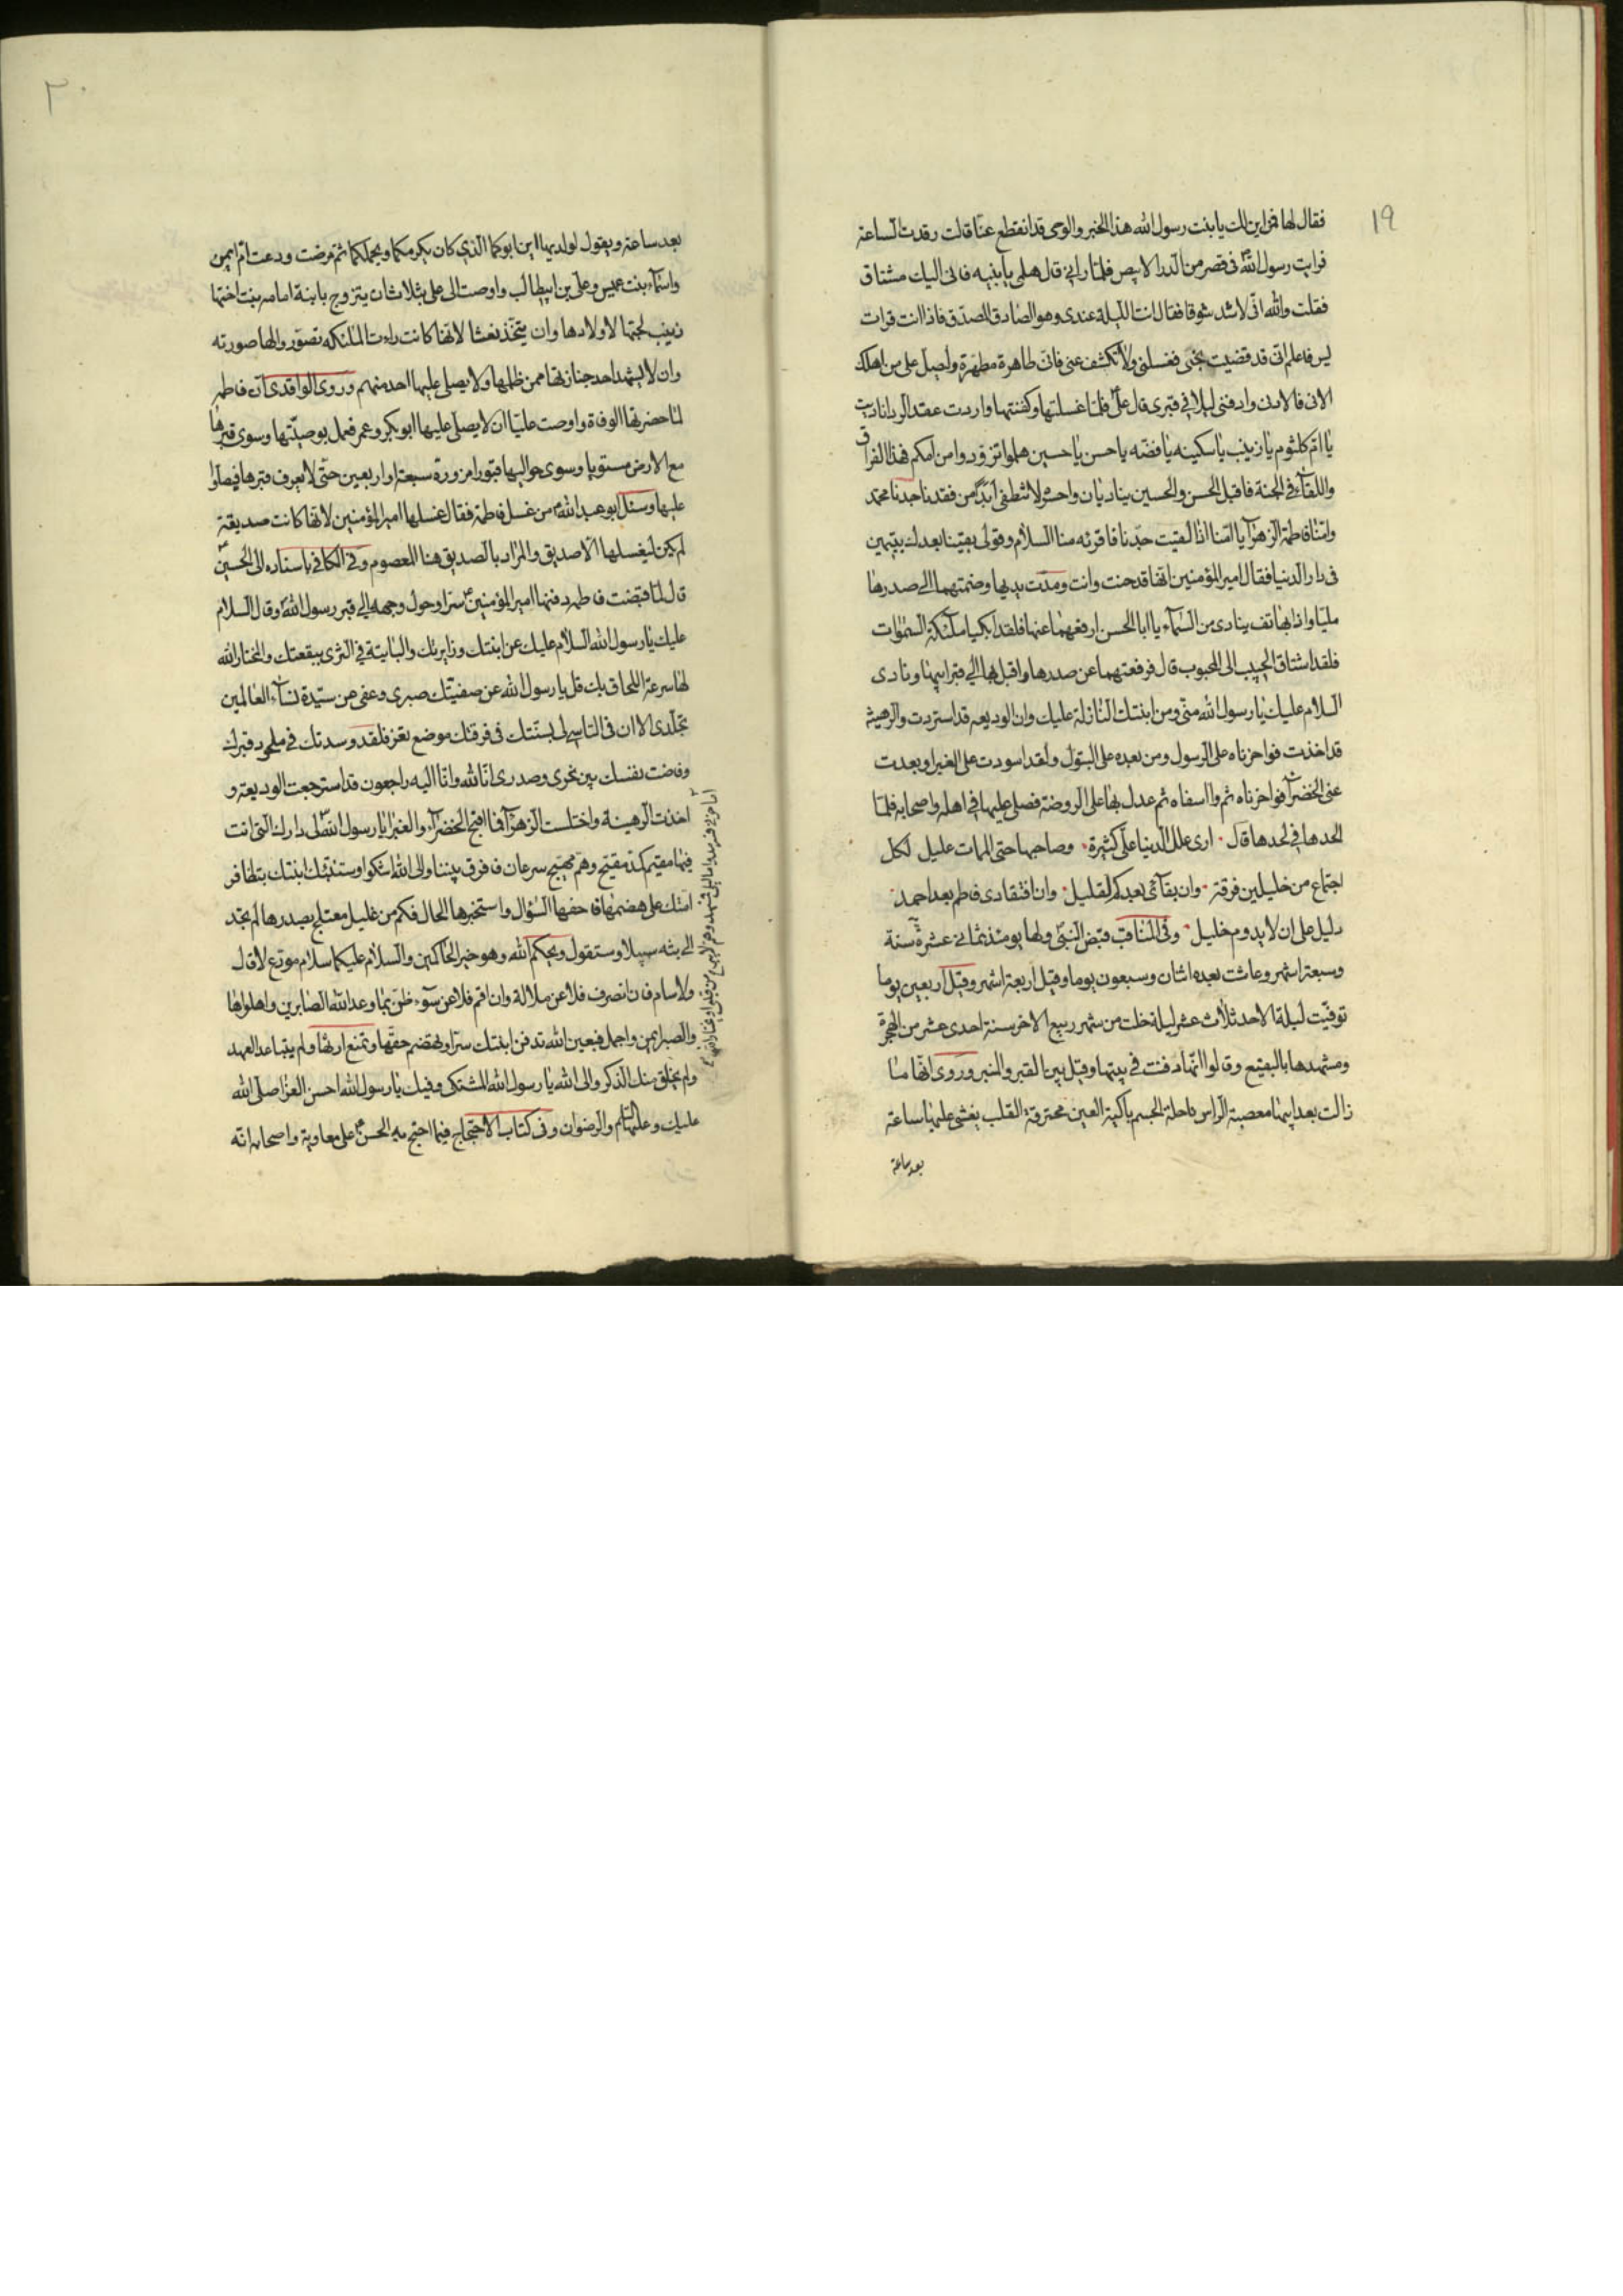 ١٩
فقال لها فمن اين لك يا بنت رسول الله هذا الخبر والوحى قد انقطع عنّا قالت رقدت الساعة
فرايت رسول الله فى قصر من الدر الابيض فلمّا رانى قال هلمى يا بنيه فانى اليك مشتاق
فقلت والله انّى لاشد شوقا فقال انت الليلة عندى وهو الصادق المصدّق فاذا انت قرات
يس فاعلم انّى قد قضيت نحبى فغسلنى ولا تكشف عنى فانّى طاهرة مطهّرة وليصل على من اهلك
الادنى فالادنى وادفنى ليلا فى قبرى قال علىّ فلمّا غسلتها وكفنتها واردت عقد الرداناديت
يا امّ كلثوم يا زينب يا سكينه يا فضّه يا حسن يا حسين هلموا تزوّدوا من امّكم فهذا الفراق
واللقآء فى الجنة فاقبل الحسن والحسين يناديان واحسرة لا تنطفى ابدًا من فقدنا جدنا محمّد
وامّنا فاطمة الزهرآء يا امّنا اذا لقيت جدّنا فاقرئه منا السلام وقولى بقينا بعدك يتيمين
فى دار الدنيا فقال امير المؤمنين انّها قد حنت وانت ومدّت يديها وضمتهما الى صدرها
مليّا واذا بهاتف ينادى من السّمآء يا ابا الحسن ارفعهما عنها فلقد ابكيا ملآئكة السموات
فلقد اشتاق الحبيب الى المحبوب قال فرفعتهما عن صدرها واقبل بها الى قبر ابيها ونادى
السلام عليك يا رسول الله منّى ومن ابنتك النازلة عليك وان الوديعه قد استردت والرهينة
قد اخذت فواحزناه على الرسول ومن بعده على البتول ولقد اسودت على الغبرا وبعدت
عنى الخضرآء فواحزناه ثم وااسفاه ثم عدل بها على الروضة فصلى عليها فى اهله واصحابه فلمّا
الحدها فى لحدها قال ارى علل الدنيا علىّ كثيرة وصاحبها حتى الممات عليل لكل
اجتماع من خليلين فرقة وان بقآئى بعدكم لقليل وان افتقادى فاطم بعد احمد
دليل على ان لا يدوم خليل وفى المناقب قبض النبّى ولها يومئذ ثمانى عشرة سنة
وسبعة اشهر وعاشت بعده اثنان وسبعون يوما وقيل اربعة اشهر وقيل اربعين يوما
توفيّت ليلة الاحد ثلاث عشر ليلة خلت من شهر ربيع الاخر سنة احدى عشر من الهجرة
ومشهدها بالبقيع وقالوا انّها دفنت فى بيتها وقيل بين القبر والمنبر وروى انّها ما
زالت بعد ابيها معصبة الراس ناحلة الجسم باكية العين محترقة القلب يغشى عليها ساعة
بعد ساعة
٢٠
بعد ساعة ويقول لولديها اين ابوكما الذى كان يكرمكما ويحملكما ثم مرضت ودعت امّ ايمن
واسمآء بنت عميس وعلى بن ابيطالب واوصت الى على بثلاث ان يتزوج بابنة امامه بنت اختها
زينب لحبّها لاولادها وان يتخّذ نعشا لانّها كانت راءت الملئكه تصوّروا لها صورته
وان لا يشهد احد جنازتها ممن ظلمها ولا يصلى عليها احد منهم وروى الواقدى انّ فاطمه
لمّا حضرتها الوفاة واوصت عليّا ان لا يصلى عليها ابوبكر وعمر فعمل بوصيّتها وسوى قبرها
مع الارض مستويا وسوى حواليها قبورا مزورة سبعة او اربعين حتّى لا يعرف قبرها فيصلوا
عليها وسئل ابو عبد الله من غسل فاطمة فقال غسلها امير المؤمنين لانّها كانت صديقة
لم يكن ليغسلها الّا صديق والمراد بالصديق هنا المعصوم وفى الكافى باسناده الى الحسين
قال لمّا قبضت فاطمه دفنها امير المؤمنين سرّا وحول وجهه الى قبر رسول الله وقال السلام
عليك يا رسول الله السلام عليك عن ابنتك وزايرتك والبايتة فى الثرى ببقعتك والمختار الله
لها سرعة اللحاق بك قل يا رسول الله عن صفيّتك صبرى وعفى عن سيّدة نسآء العالمين
تجلّدى الا ان فى التاسى لى بسنتك فى فرقتك موضع تعز فلقد وسدتك فى ملحود قبرك
وفاضت نفسك بين نحرى وصدرى انّا لله وانّا اليه راجعون قد استرجعت الوديعة و
اخذت الرهينة واختلست الزهرآء فما اقبح الخضرآء والغبرا يا رسول الله الى دارك التى انت
فيها مقيم كمد مقيح وهم مهيج سرعان ما فرق بيننا والى الله اشكو وستنبئك ابنتك بتظافر
امّتك على هضمها فاحفها السؤال واستخبرها الحال فكم من غليل معتلج بصدرها لم تجد
الى بثه سبيلا وستقول ويحكم الله وهو خير الحاكمين والسلام عليكما سلام مودّع لا قال
ولا سام فان انصرف فلا عن ملالة وان اقم فلا عن سوء ظنّ بما وعد الله الصابرين واها واها
والصبر ايمن واجمل فبعين الله تدفن ابنتك سرّا وتهتضم حقّها وتمنع ارثها ولم يتباعد العهد
ولم يخلق منك الذكر والى الله يا رسول الله المشتكى وفيك يا رسول الله احسن العزا صلّى الله
عليك وعليها السّلم والرضوان وفى كتاب الاحتجاج فيما احتج به الحسن على معاوية واصحابه انه